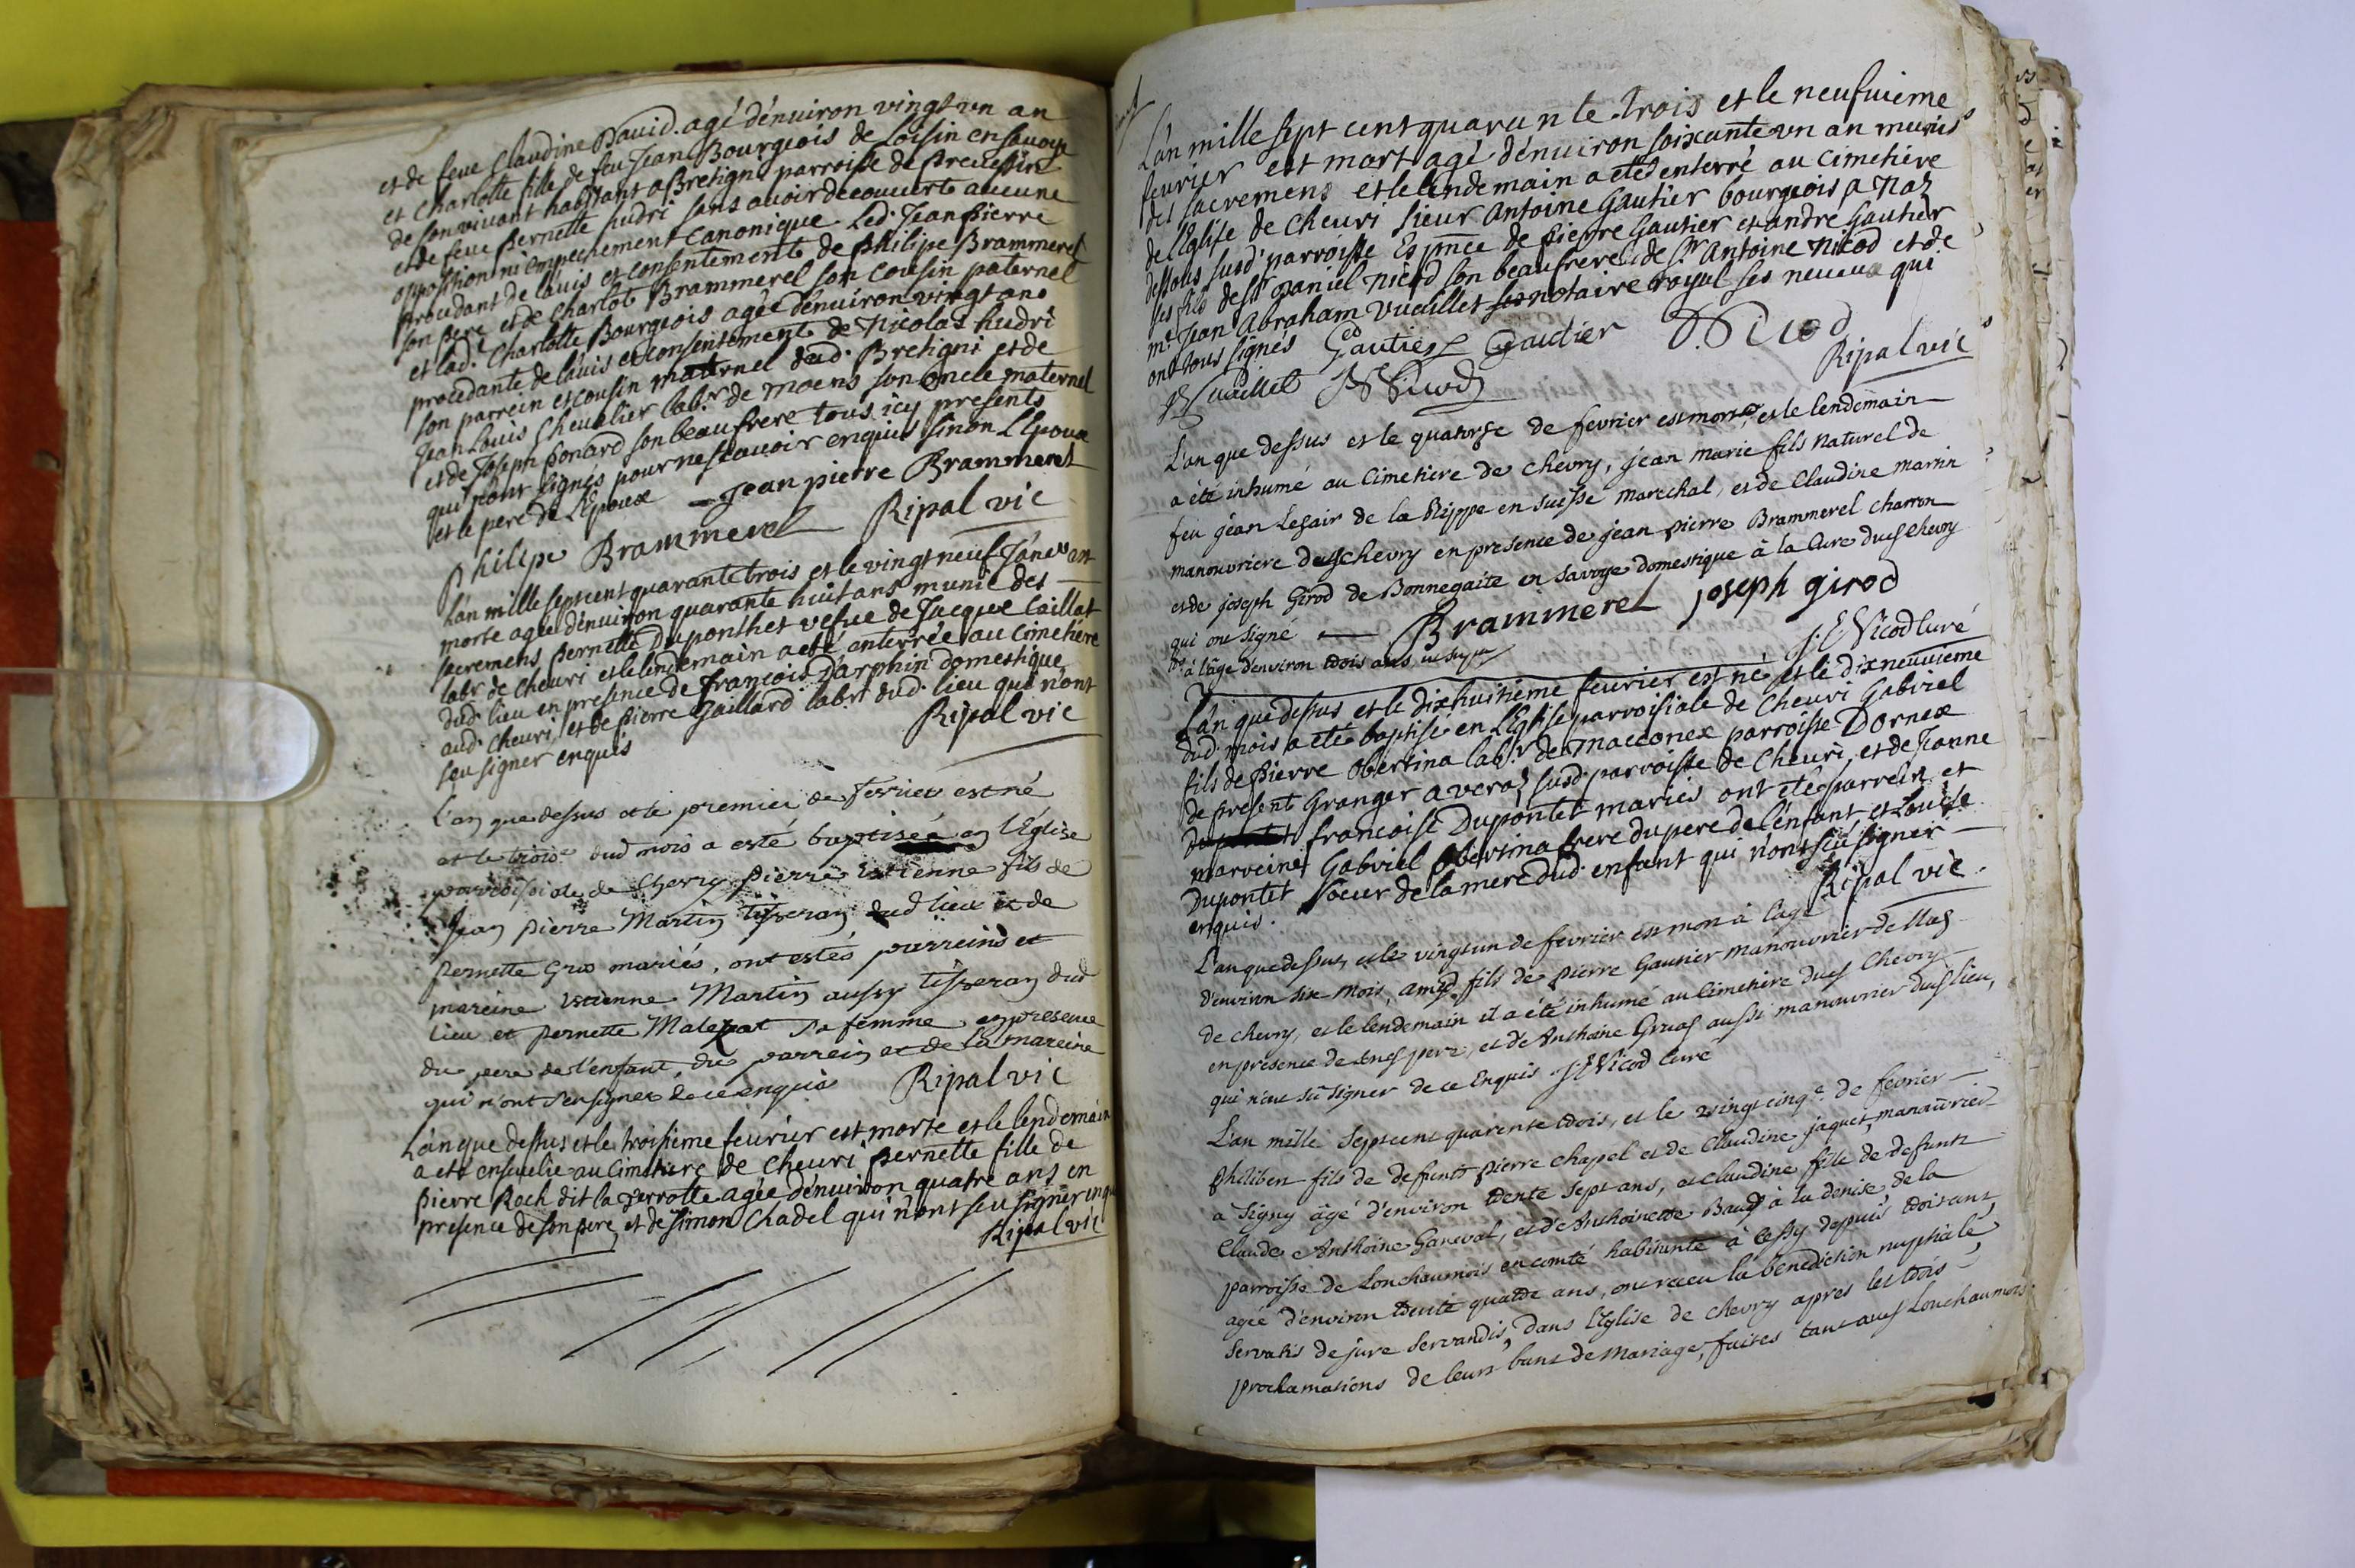 et de feue Claudine David. agé dénuiron vingt un an
et Charlotte fille de feu Jean Bourgeois de Loisin en Savoye
de son viuant habitant a Bretigni parroisse de Preuessin
et de feue Pernette hudri sans auoir decouuert aucune
opposition ni empechement Canonique. Led. Jean Pierre
procedant de lauis et consentement de Philipe Brammerel
son pere et de Charlot Brammerel son Cousin paternel
et lad.e Charlotte Bourgeois agée dénuiron vingt ans
procedante de lauis et consentement de Nicolas hudri
son parrein et cousin maternel dud. Bretigni et de
Jean Louis Cheualier labr. de Moens son oncle maternel
et de Joseph Ponard son beau frere tous icy presents
qui n'ont signés pour ne scauoir enquis sinon L'Epoux
et le pere de L'Epoux - Jean pierre Brammerel
philipe Brammerel Ripal vic
Lán mille sept cent quarante trois et le vingt neuf Janer est
morte agée dénuiron quarante huit ans munie des
sacremens, pernette Duponthet vefue de Jacque Caillat
labr de Cheuri et le lendemain a eté enterrée au Cimetiére
dud. lieu en presence de françois Darphin domestique
aud. Cheuri, et de pierre Gaillard labr dud. lieu qui n'ont
seu signer enquis Ripal vic
L'an que dessus et le premier de Fevrier est né
et le trois.e dud mois a esté baptisée en l'Eglise
parroissiale de Chevry pierre Estienne fils de
Jean pierre Martin tisseran dud lieu et de
pernette Gros mariés, ont estés parreins et
mareine Estienne Martin aussy tisseran dud
lieu et pernette sa femme en presence
du pere de l'enfant, du parrein et de la mareine
qui n'ont seu signer de ce enquis Ripal vic
Lán que dessus et le troisiéme feurier est morte et le lendemain
a eté enseuelie au Cimetiere de Cheuri pernette fille de
pierre Roch dit la Jerrotte agée dénuiron quatre ans en
presence de son pere, et de simon Chadel qui n'ont seu signer inquis
Ripal vic
Lán mille sept cent quarante. trois et le neufuieme
feurier est mort agé dénuiron soixante un an munis
des sacremens et le lendemain a eté enterré au Cimetiére
de lEglise de Cheuri sieur Antoine Gautier bourgeois a Naz
dessous susd. parroisse Es pnce de pierre Gautier et andré Gautier
ses fils de sr Daniel Nicod son beaufrere de Sr Antoine Nicod et de
me Jean Abraham Vuaillet notaire royal ses neueux qui
ont tous signés Gautier Gautier D. Nicod
Vuaillet Nicod Ripal vic
L'an que dessus et le quatorse de fevrier est mort, et le lendemain
a été inhumé au Cimetiere de Chevry, jean marie fils naturel de
feu jean Legair de la Rippe en suisse marechal, et de Claudine martin
manouvriere dud Chevry en presence de jean pierre Brammerel charron
et de joseph Girod de Bonnegaite en Savoye domestique à la Cure dud Chevry
qui ont signé — Brammerel joseph girod
à l'âge d'environ trois ans J: E Nicod curé
Lán que dessus et le dixhuitiéme feurier est né et le dixneuuiéme
dud. mois a eté baptisé en l'Eglise parroissiale de Cheuri Gabriel
fils de pierre Obertina labr. de Macconex parroisse Dornex
de present Granger a veraz susd. parroisse de Cheuri, et de Jeanne
francoise Dupontet mariés ont eté parrein et
marreine Gabriel Obertina frere du pere de l'enfant, et Louise
Dupontet Soeur de la mere dud. enfant qui n'ont seu signer
enquis. Ripal vic.
L'an que dessus, et le vingt un de fevrier est mort à l'age
d'environ six mois, amed fils de pierre Gautier manouvrier de Naz
de chevry, et le lendemain il a été inhumé au Cimetiere dud Chevry
en presence de pere, et de Anthoine Gruaz aussi manouvrier dud lieu,
qui n'ont sû signer de ce enquis J: E Nicod Curé
L'an mille septcent quarente trois, et le vingtcinq.e de fevrier
philibert fils de defunts pierre chapel et de Claudine jaquet, manouvrier
a Segny âgé d'environ trente sept ans, et claudine fille de defunts
Claude Anthoine Ganeval, et d'Anthoinette Baud à la denise de la
parroisse de Lonchaumois en comté habitante à Cessy depuis trois ans,
agée d'environ trente quatre ans, ont receu la benediction nuptiale,
servatis de jure servandis, dans l'Eglise de chevry apres les trois
proclamations de leurs bans de mariage, faites tant aud Lonchaumois